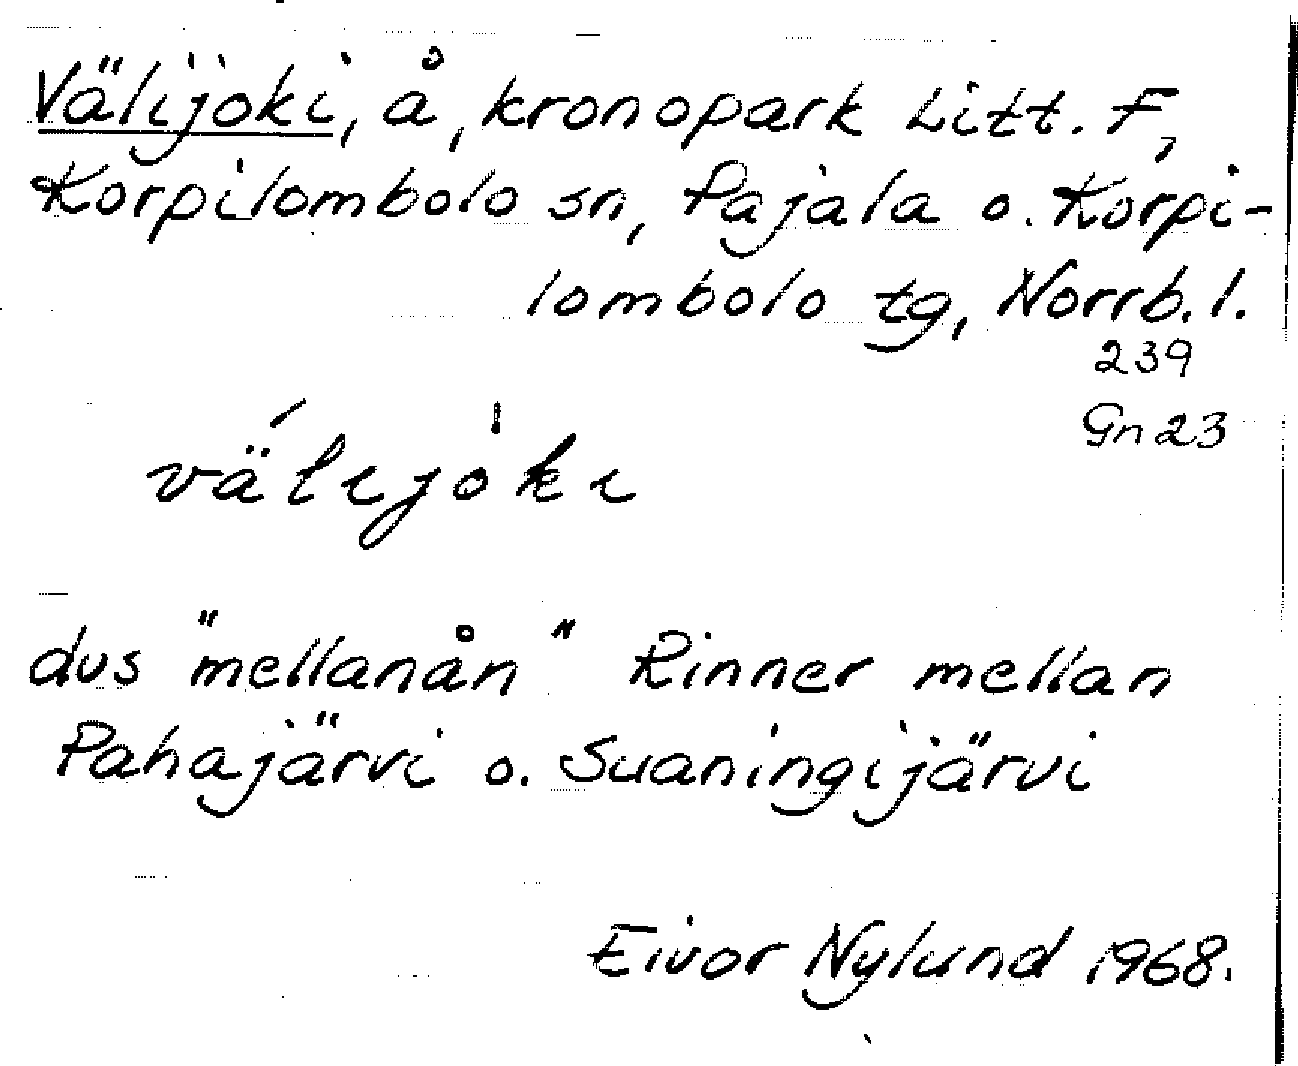 Välijoki, å, kronopark Litt. F,
Korpilombolo sn, Pajala o. Korpi-
lombolo tg, Norrb. l.
239
Gn 23
väĺijòkι
dvs "mellanån" Rinner mellan
Pahajärvi o. Suaningijärvi
Eivor Nylund 1968.